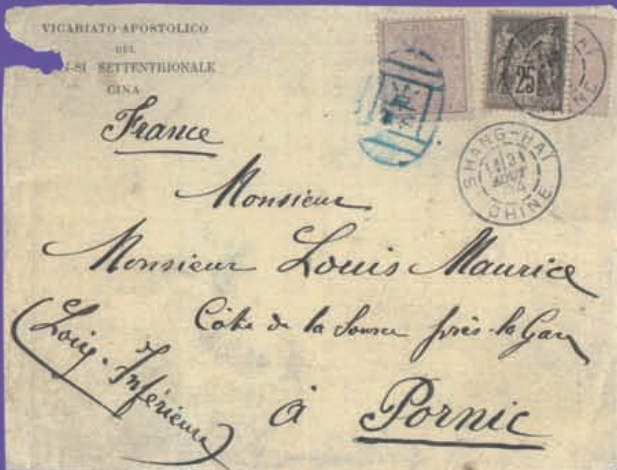 VICARIATO APOSTOLICO
DEL
N-SI SETTENTRIONALE
CINA
CHINA
25
HAI
CHINE
France
SHANG-HAÏ
31
AOUT
CHINE
Monsieur
Monsieur Louis Maurice
Côte de la Source près la Gare
(Loire-Inférieure)
à Pornic